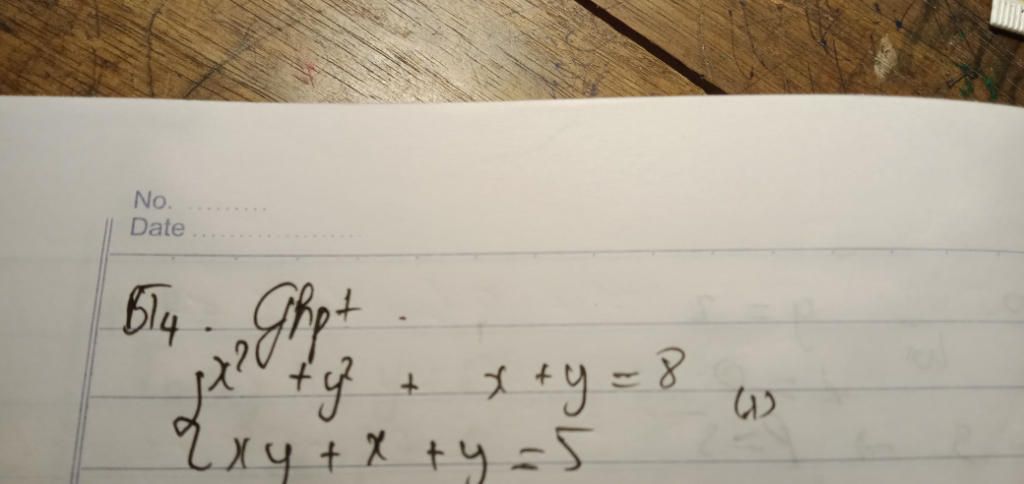 No. .........
Date ..................
BT4. Ghpt.
{ x² + y² + x + y = 8
xy + x + y = 5 (1)